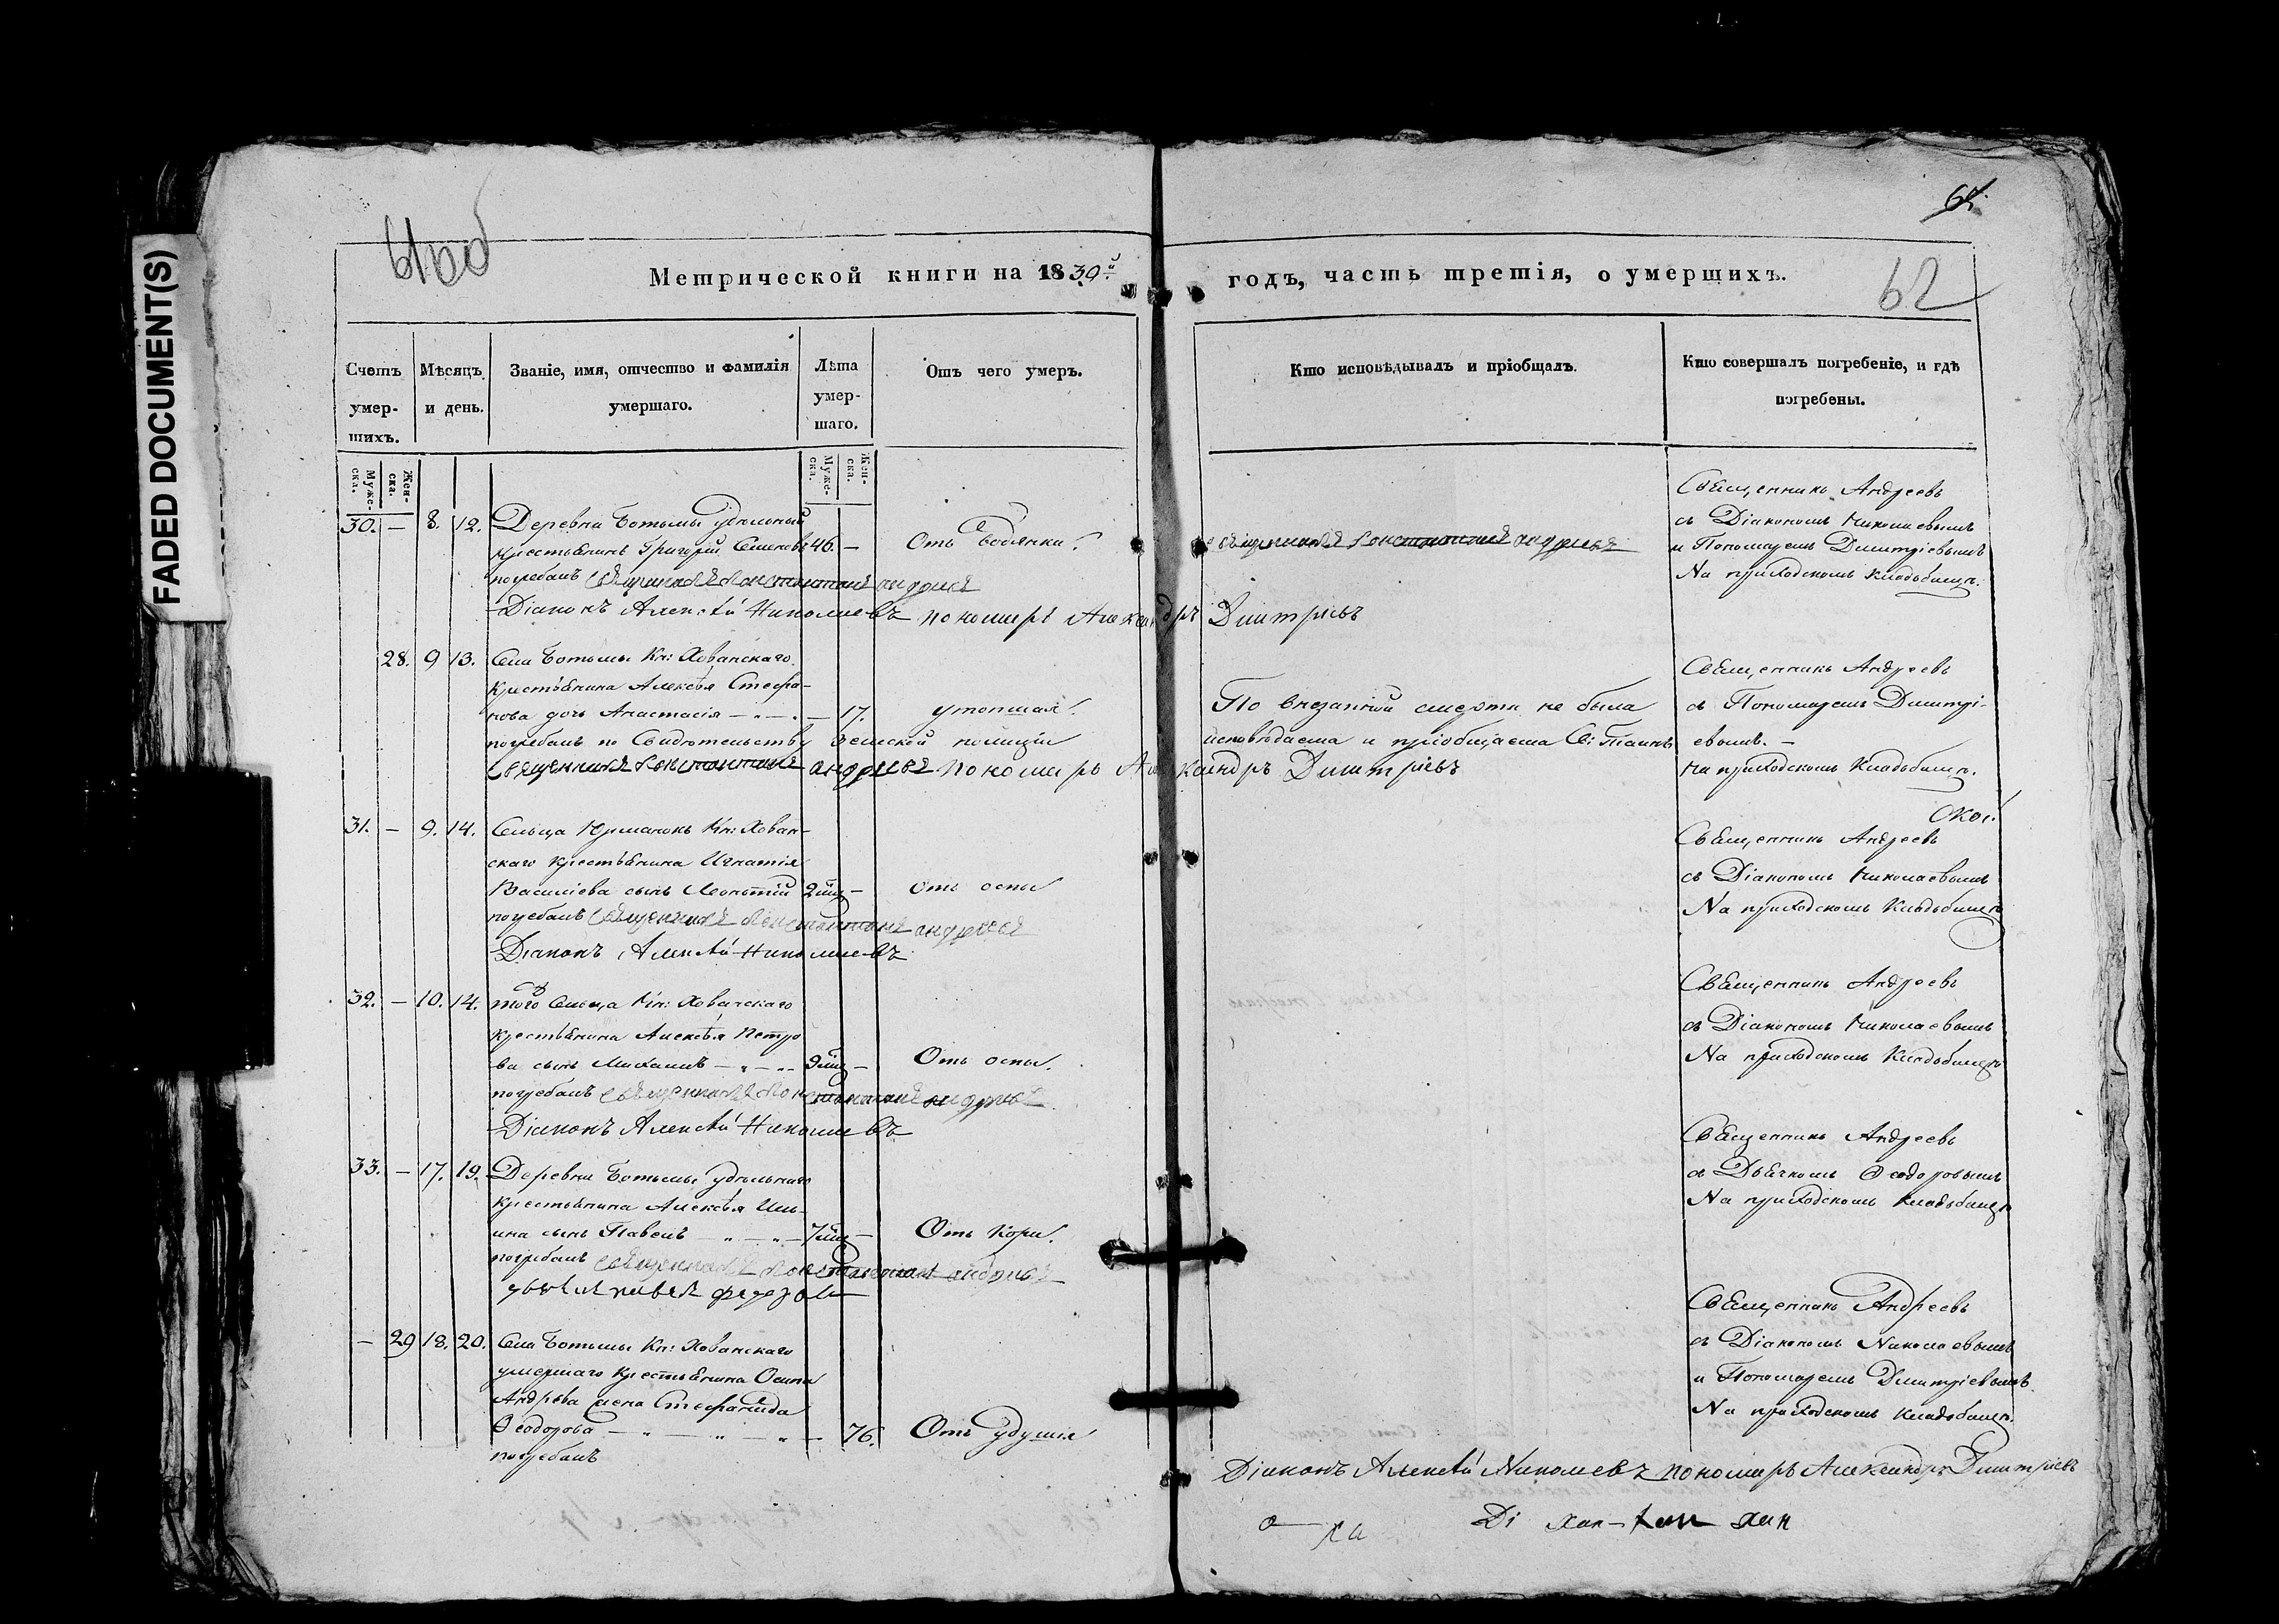 FADED DOCUMENT(S)
61 об
62
Метрической книги на 1839й годъ, часть третія, о умерщихъ.
Счетъ умер-шихъ.
Мѣсяцъ и день.
Званіе, имя, отчество и фамилія умершаго.
Лѣта умер-шаго.
Отъ чего умеръ.
Кто исповѣдывалъ и пріобщалъ.
Кто совершалъ погребеніе, и гдѣ погребены.
Муже-ска.
Жен-ска.
Муже-ска.
Жен-ска.
30. — 8. 12. Деревни Ботьмы удѣльный
крестьянинъ Григорій Семеновъ 46. — Отъ водянки.
священникъ Константинъ андреевъ
погребалъ священникъ Константинъ андреевъ
Діаконъ Алексѣй Николаевъ пономарь Александръ Дмитріевъ
Священникъ Андреевъ
съ Діакономъ Николаевымъ
и Пономаремъ Димитріевымъ
На приходскомъ кладбищѣ.
28. 9 13. Села Ботьмы Кн: Хованскаго
крестьянина Алексѣя Стефа-
нова дочь Анастасія — 17. утопшая.
погребалъ по Свидѣтельству земской полиціи
священникъ Константинъ андреевъ пономарь Александръ Дмитріевъ
По внезапной смерти не была
исповѣдаема и пріобщаема Св: Таинъ
Священникъ Андреевъ
съ Пономаремъ Димитрі-
евымъ. —
на приходскомъ Кладбищѣ.
31. — 9. 14. Сельца Юрманокъ Кн: Хован-
скаго крестьянина Игнатія
Василіева сынъ Леонтій 2 — Отъ оспы
погребалъ священникъ Константинъ андреевъ
Діаконъ Алексѣй Николаевъ
Священникъ Андреевъ
съ Діакономъ Николаевымъ
На приходскомъ Кладбищѣ
32. — 10. 14. того Сельца Кн: Хованскаго
крестьянина Алексѣя Петро
ва сынъ Михаилъ — 9 — Отъ оспы.
погребалъ священникъ Константинъ андреевъ
Діаконъ Алексѣй Николаевъ
Священникъ Андреевъ
съ Діакономъ Николаевымъ
На приходскомъ Кладбищѣ
33. — 17. 19. Деревни Ботьмы удѣльнаго
крестьянина Алексѣя Иль-
ина сынъ Павелъ — 7 — Отъ кори.
погребалъ священникъ Константинъ андреевъ
Священникъ Андреевъ
съ Дьячкомъ Ѳеодоровымъ
На приходскомъ Кладбищѣ
— 29 18. 20. Села Ботьмы Кн: Хованскаго
умершаго крестьянина Осипа
Андрѣева жена Стефанида
Ѳеодорова — 76. Отъ удушія
погребалъ
Священникъ Андреевъ
съ Діакономъ Николаевымъ
и Пономаремъ Димитріевымъ.
На приходскомъ кладбищѣ.
Діаконъ Алексѣй Николаевъ пономарь Александръ Дмитріевъ